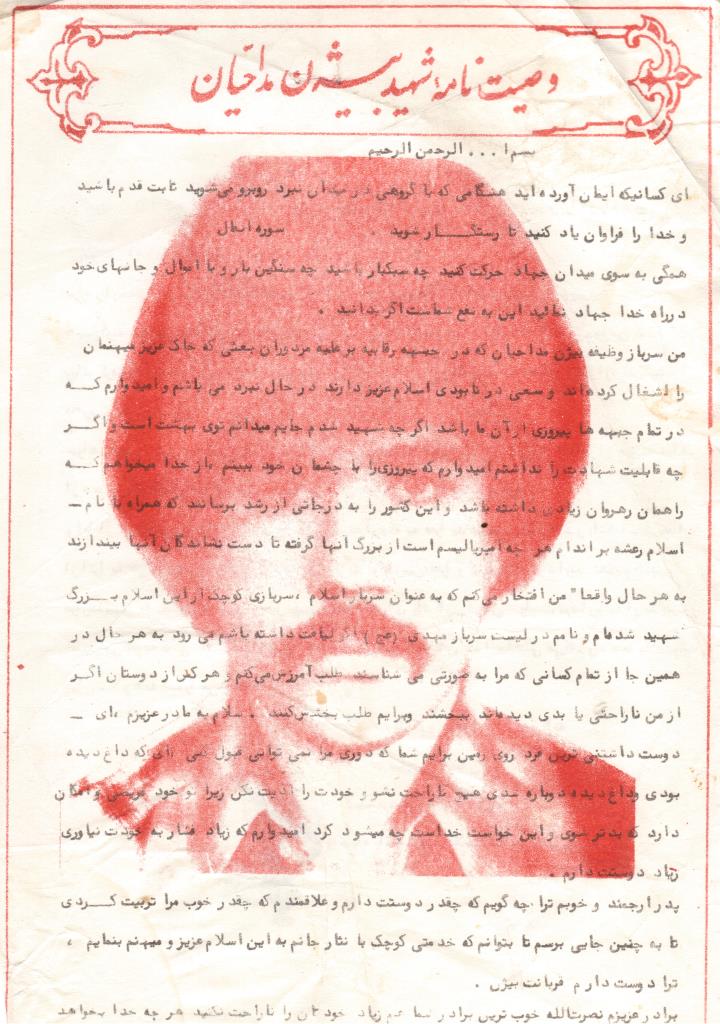 وصیت نامه شهید بیژن مداحیان
بسم‌ا ... الرحمن الرحیم
ای کسانیکه ایمان آورده اید هنگامی که با گروهی در میدان نبرد روبرو می‌شوید ثابت قدم باشید
و خدا را فراوان یاد کنید تا رستگار شوید . سوره انفال
همگی به سوی میدان جهاد حرکت کنید چه سبکبار باشید چه سنگین بار و با اموال و جانهای خود
در راه خدا جهاد نمائید این به نفع شماست اگر بدانید .
من سرباز وظیفه بیژن مداحیان که در جبهه رقابیه بر علیه مزدوران بعثی که خاک عزیز میهنمان
را اشغال کرده‌اند و سعی در نابودی اسلام عزیز دارند در حال نبرد می باشم و امیدوارم که
در تمام جبهه ها پیروزی از آن ما باشد اگر چه شهید شدم جایم میدانم توی بهشت است و اگر
چه قابلیت شهادت را نداشتم امیدوارم که پیروزی را با چشمان خود ببینم باز خدا میخواهم که
راهمان رهروان زیادی داشته باشد و این کشور را به درجاتی از رشد برسانند که همراه با نام ـ
اسلام رعشه بر اندام هر چه امپریالیسم است از بزرگ آنها گرفته تا دست نشاندگان آنها بیندازند
به هر حال واقعا" من افتخار می‌کنم که به عنوان سرباز اسلام ، سربازی کوچک از این اسلام بزرگ
شهید شده‌ام و نامم در لیست سرباز مهدی (عج) اگر لیاقت داشته باشم می رود به هر حال در
همین جا از تمام کسانی که مرا به صورتی می شناسند طلب آمرزش می‌کنم و هر کدر از دوستان اگر
از من ناراحتی یا بدی دیده‌اند ببخشند وبرایم طلب بخشش کنند . سلام به مادر عزیزم ،ای ـ
دوست داشتنی ترین فرد روی زمین برایم شما که دوری مرا نمی توانی قبول کنی ،ای که داغ دیده
بودی وداغ دیده دوباره شدی هیچ ناراحت نشو و خودت را اذیت نکن زیرا تو خود مریضی و امکان
دارد که بدتر شوی و این خواست خداست چه میشود کرد امیدوارم که زیاد فشار به خودت نیاوری
زیاد دوستت دارم .
پدر ارجمند و خوبم ترا چه گویم که چقدر دوستت دارم و علاقمندم که چقدر خوب مرا تربیت کردی
تا به چنین جایی برسم تا بتوانم که خدمتی کوچک با نثار جانم به این اسلام عزیز و میهنم بنمایم ،
ترا دوست دارم قربانت بیژن .
برادر عزیزم نصرت‌الله خوب ترین برادر شما هم زیاد خودتان را ناراحت نکنید هر چه خدا بخواهد